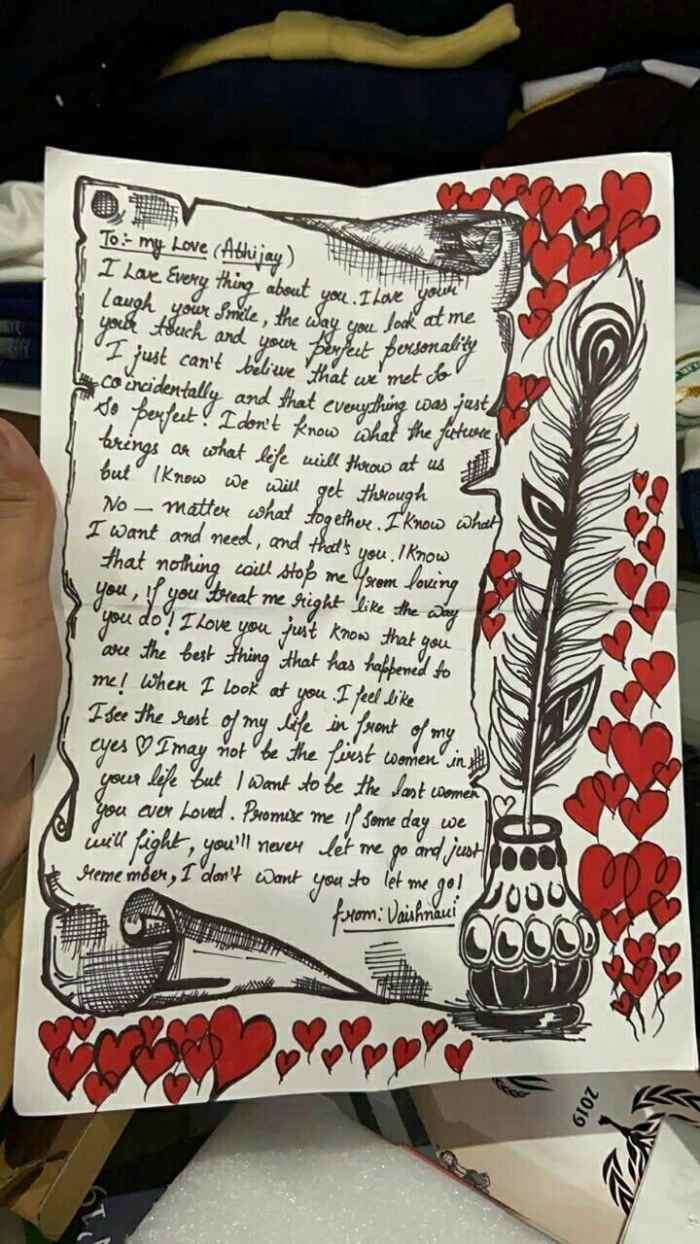 To:- my Love (Abhijay)
I Love Every thing about you. I Love your
laugh your smile, the way you look at me
your touch and your perfect personality
I just can't believe that we met so
coincidentally and that everything was just
so perfect! I don't know what the future
brings or what life will throw at us
but I know we will get through
No - matter what together. I know what
I want and need, and that's you. I know
that nothing will stop me from loving
you, if you treat me right like the way
you do! I Love you just know that you
are the best thing that has happened to
me! When I look at you I feel like
I see the rest of my life in front of my
eyes ♡ I may not be the first women in
your life but I want to be the last women
you ever Loved. Promise me if some day we
will fight, you'll never let me go and just
remember, I don't want you to let me go!
from: Vaishnavi
2019